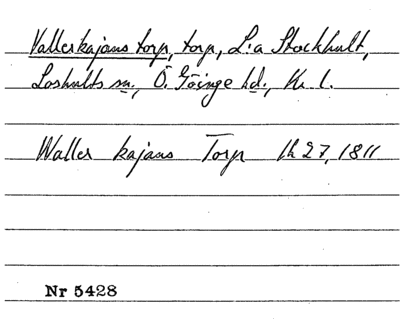 Vallerkajans torp, torp, L:a Stockhult,
Loshults sn., Ö. Göinge hd., Kr. l.
Waller kajans Torp lh 27, 1811
Nr 5428